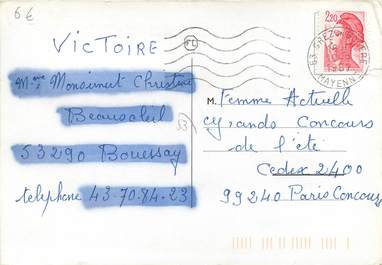 6€
VICTOIRE
Mme Monsimet Christine
Beausoleil
53290 Bouessay
telephone 43-70-84-23
53
2,20
MAYENNE
M. Femme Actuelle
Concours
de l'été
Cedex 2400
99240 Paris Concours